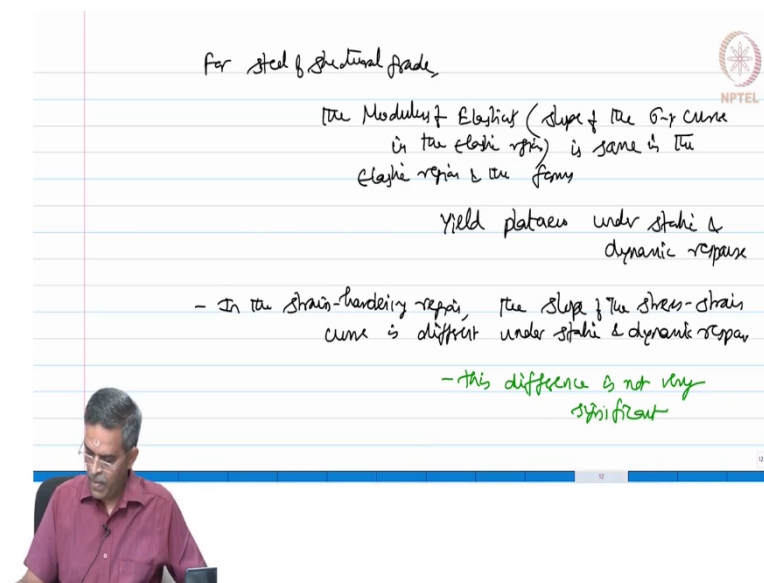 For steel of structural grade,
NPTEL
the Modulus of Elasticity (slope of the σ-ε curve
in the elastic region) is same in the
elastic region & the
Yield plataeu under static &
dynamic response
- In the strain-hardening region, the slope of the stress-strain
curve is different under static & dynamic respon
- this difference is not very
significant
12
12